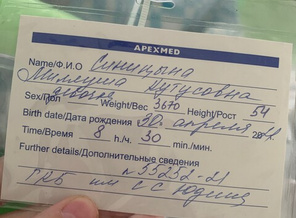 APEXMED
Name/Ф.И.О Синицына
Милешна Рутусовна
девочка
Sex/Пол Weight/Вес 3670 Height/Рост 54
Birth date/Дата рождения 30 апреля
Time/Время 8 h./ч. 30 min./мин.
Further details/Дополнительные сведения
№35252-21
ГКБ им С.С Юдина